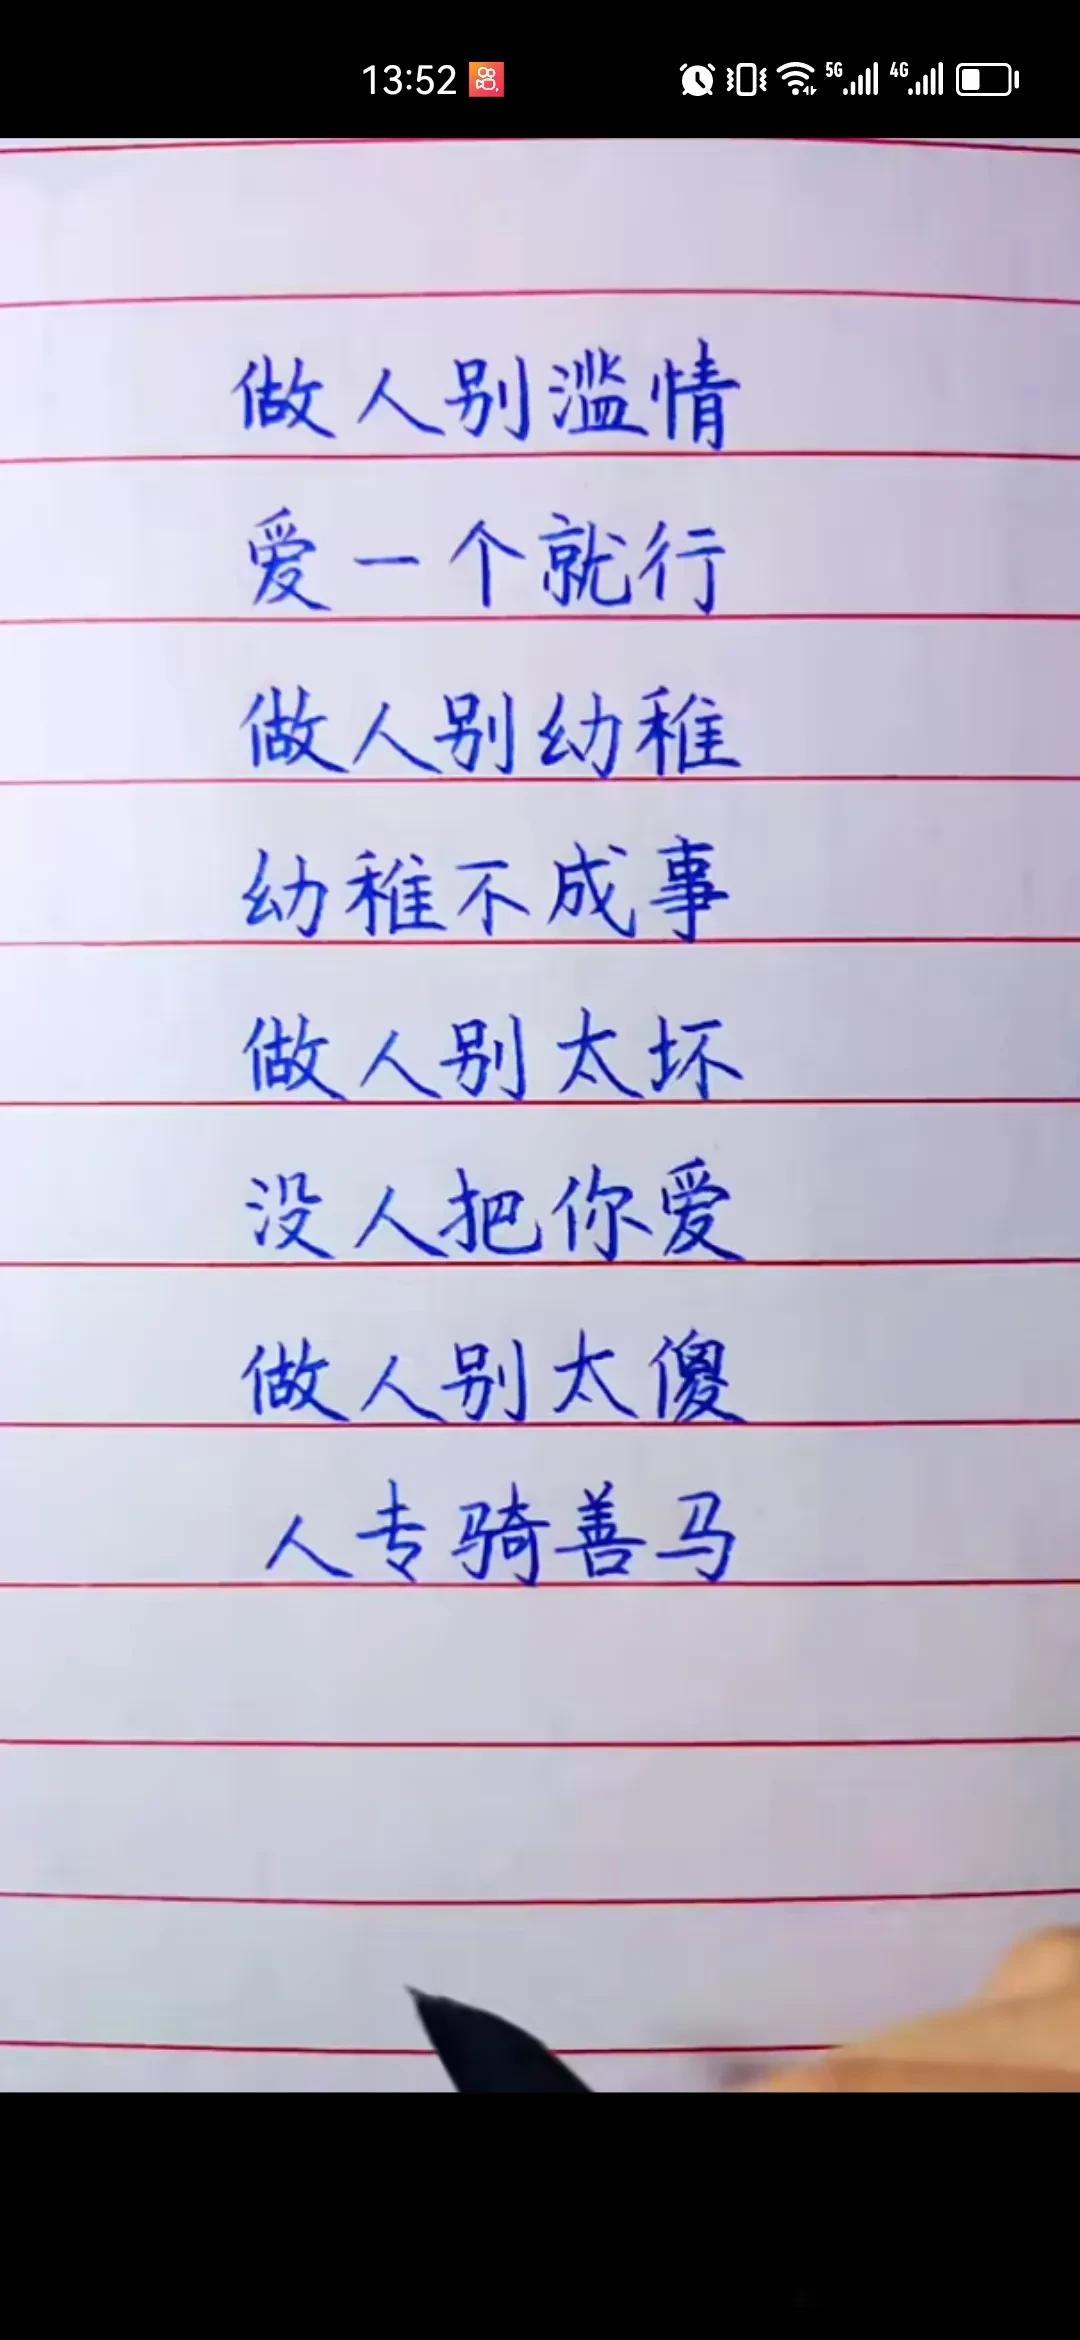 13:52
5G
4G
做人别滥情
爱一个就行
做人别幼稚
幼稚不成事
做人别太坏
没人把你爱
做人别太傻
人专骑善马